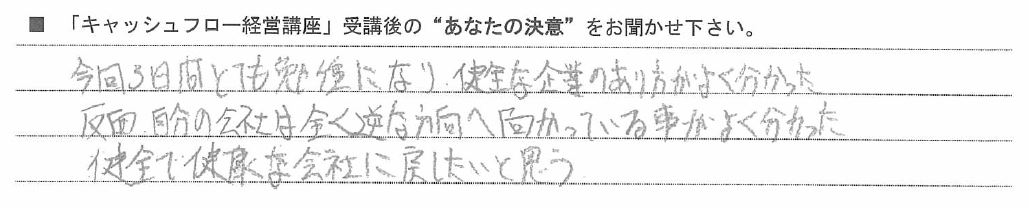 ■ 「キャッシュフロー経営講座」受講後の“あなたの決意”をお聞かせ下さい。
今回3日間とても勉強になり 健全な企業のあり方がよく分かった
反面 自分の会社は全く逆な方向へ向かっている事がよく分かった
健全で健康な会社に戻したいと思う